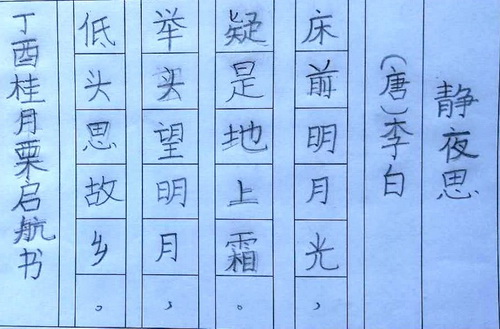 静夜思
(唐)李白
床前明月光，
疑是地上霜。
举头望明月，
低头思故乡。
丁酉桂月栗启航书